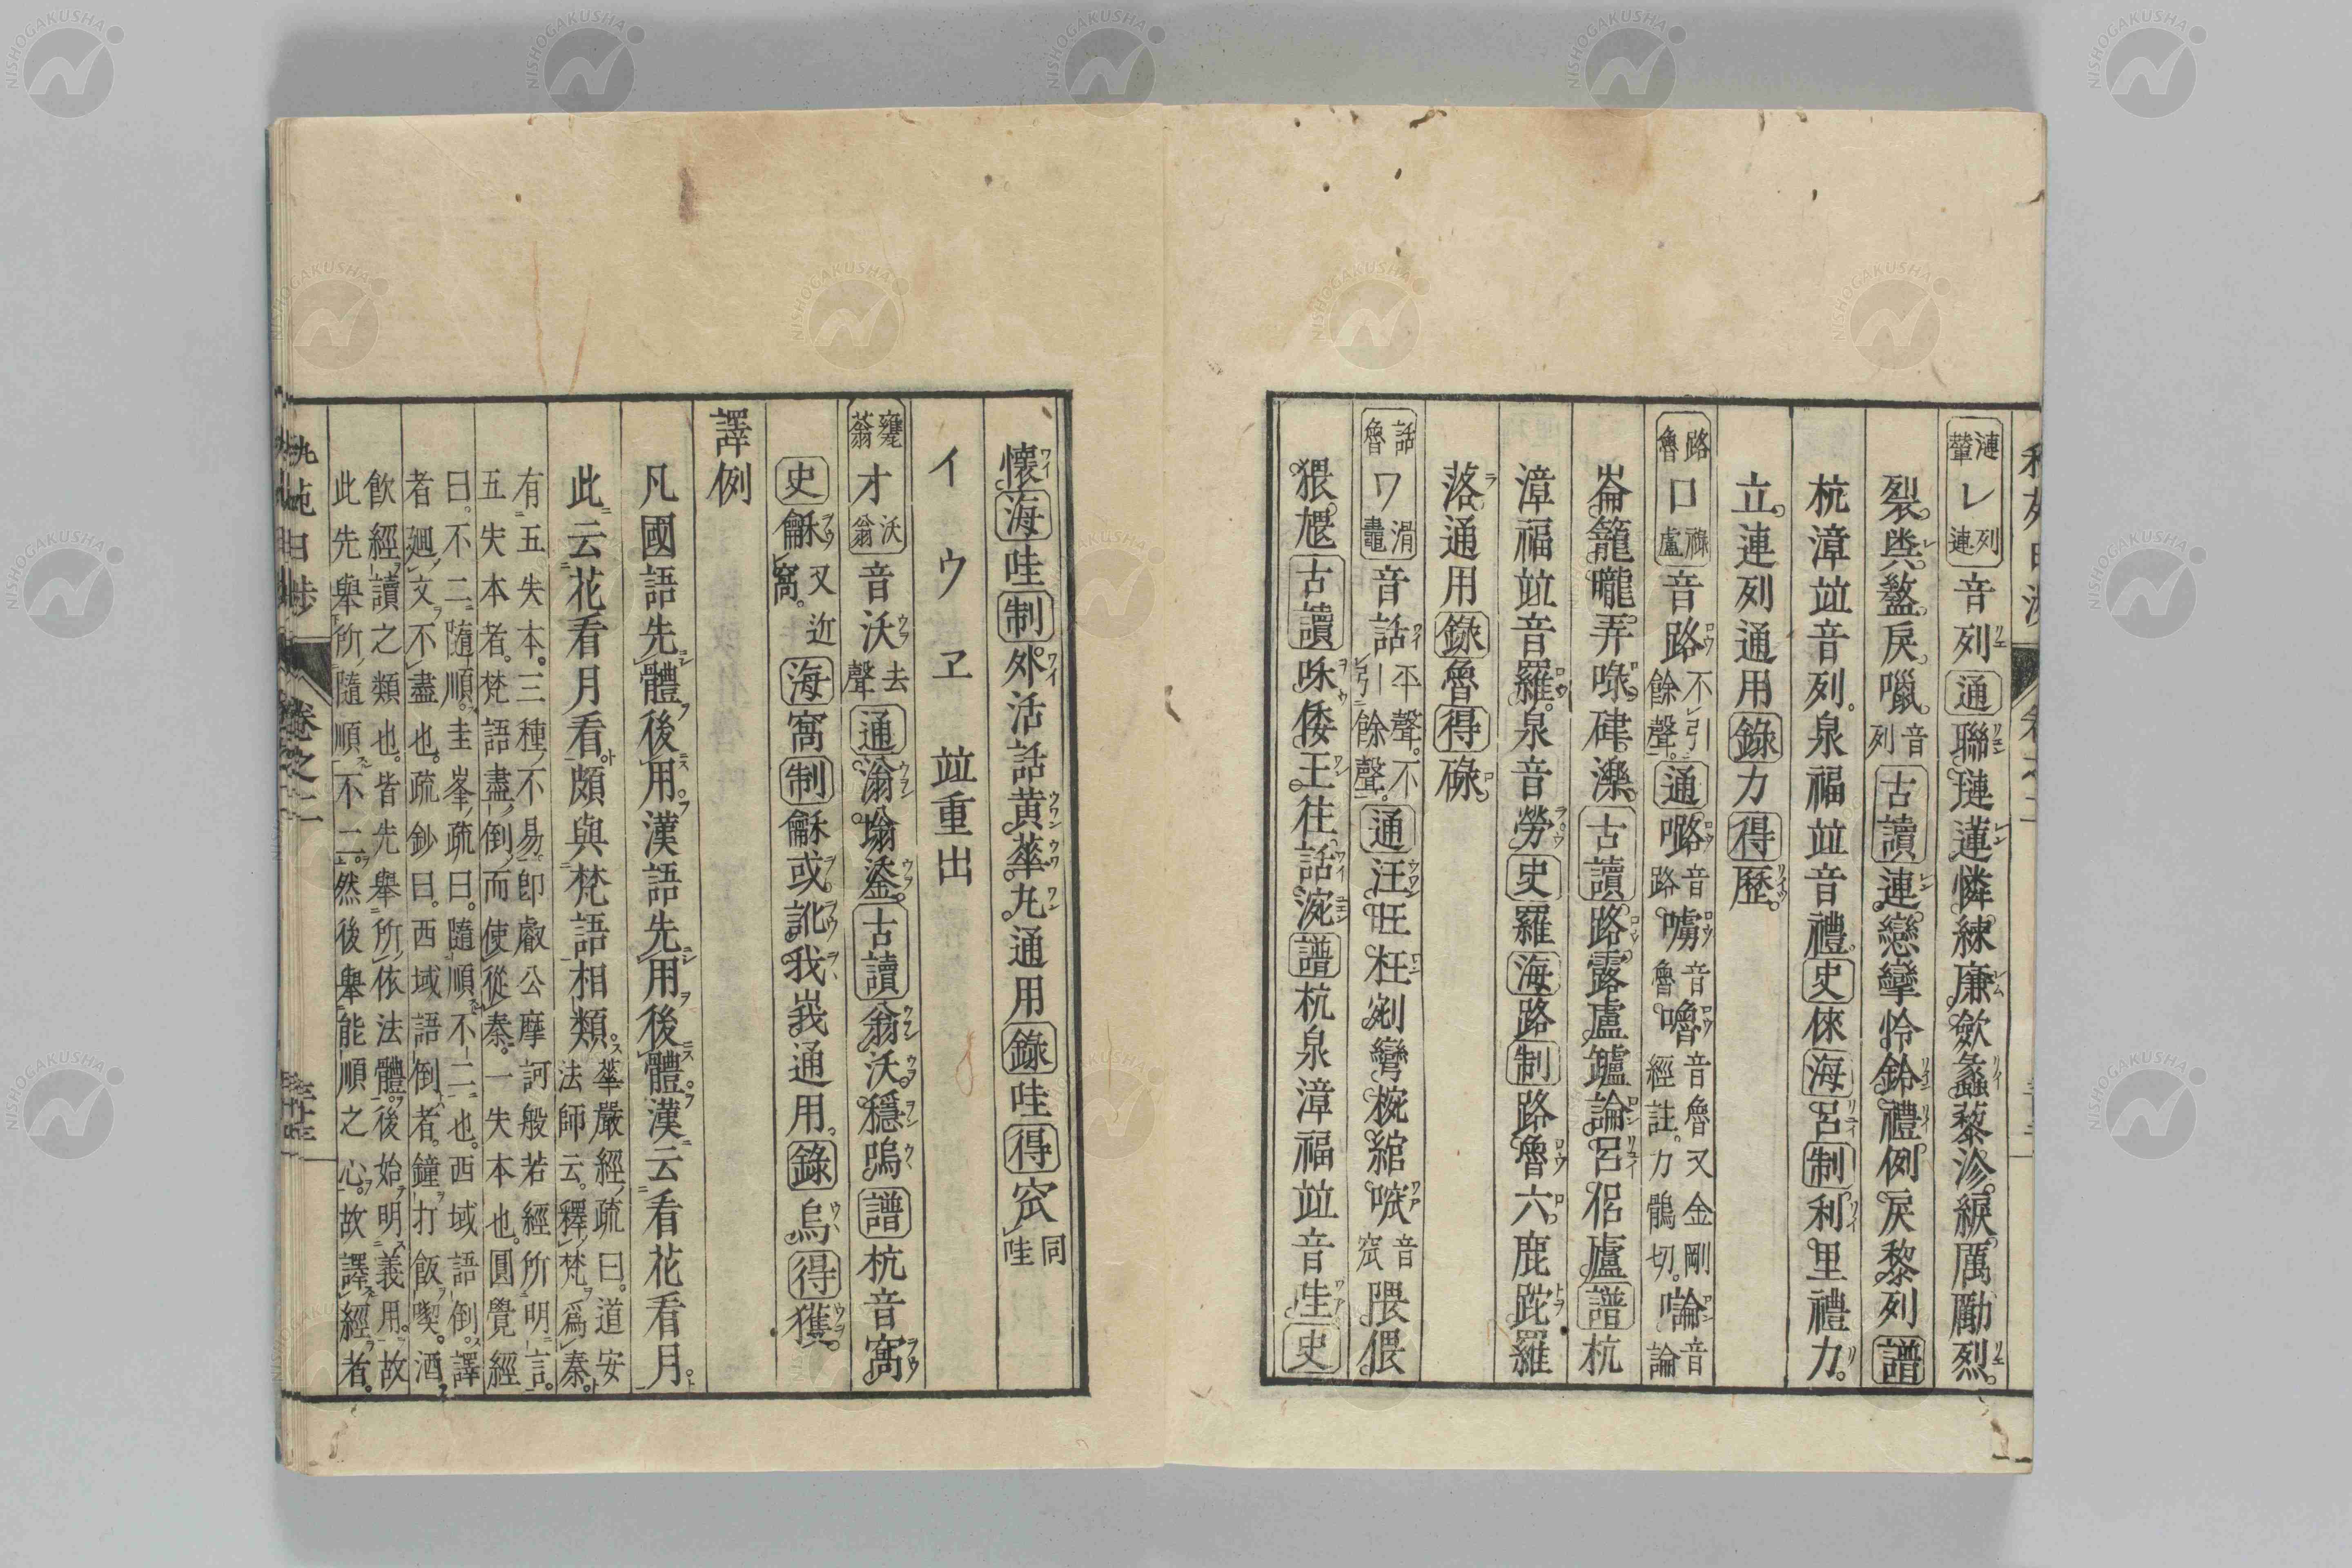 漣輦レ列連音列通聯璉蓮憐練廉歛蠡藜沴綟厲勵烈
裂盭戾㘑音列古讀連戀孿怜鈴禮例戾黎列譜
杭漳竝音列泉福竝音禮史倈海呂制利里禮力
立連列通用錄力得歷
路魯ロ祿盧音路不引餘聲通嚕音路嘮音魯嚕音魯又金剛經註力鶻切論音論
崙籠嚨弄㖨硉濼古讀路露盧鑪論呂侶廬譜杭
漳福竝音羅泉音勞史羅海路制路魯六鹿跎羅
落通用錄魯得碌
話魯ワ滑鼃音話平聲引不餘聲通汪旺枉剜彎椀綰音隈偎
猥尯古讀咊倭王往話涴譜杭泉漳福竝音哇史
懷海哇制外活話黄華丸通用錄哇得窊同哇
イウヱ竝重出
甕蓊オ沃翁音沃去聲通滃塕鋈古讀翁沃穩嗚譜杭音窩
史龢又近窩海窩制龢或訛我峩通用錄烏得獲
譯例
凡國語先體後用漢語先用後體漢云看花看月
此云花看月看頗與梵語相類華嚴經疏曰道安法師云釋梵爲秦
有五失本三種不易卽叡公摩訶般若經所明言
五失本者梵語盡倒而使從秦一失本也圓覺經
曰不二隨順圭峯疏曰隨順不二也西域語倒譯
者廻文不盡也疏鈔曰西域語倒者鐘打飯喫酒
飮經讀之類也皆先舉所依法體後始明義用故
此先舉所隨順不二然後舉能順之心故譯經者
卷之二